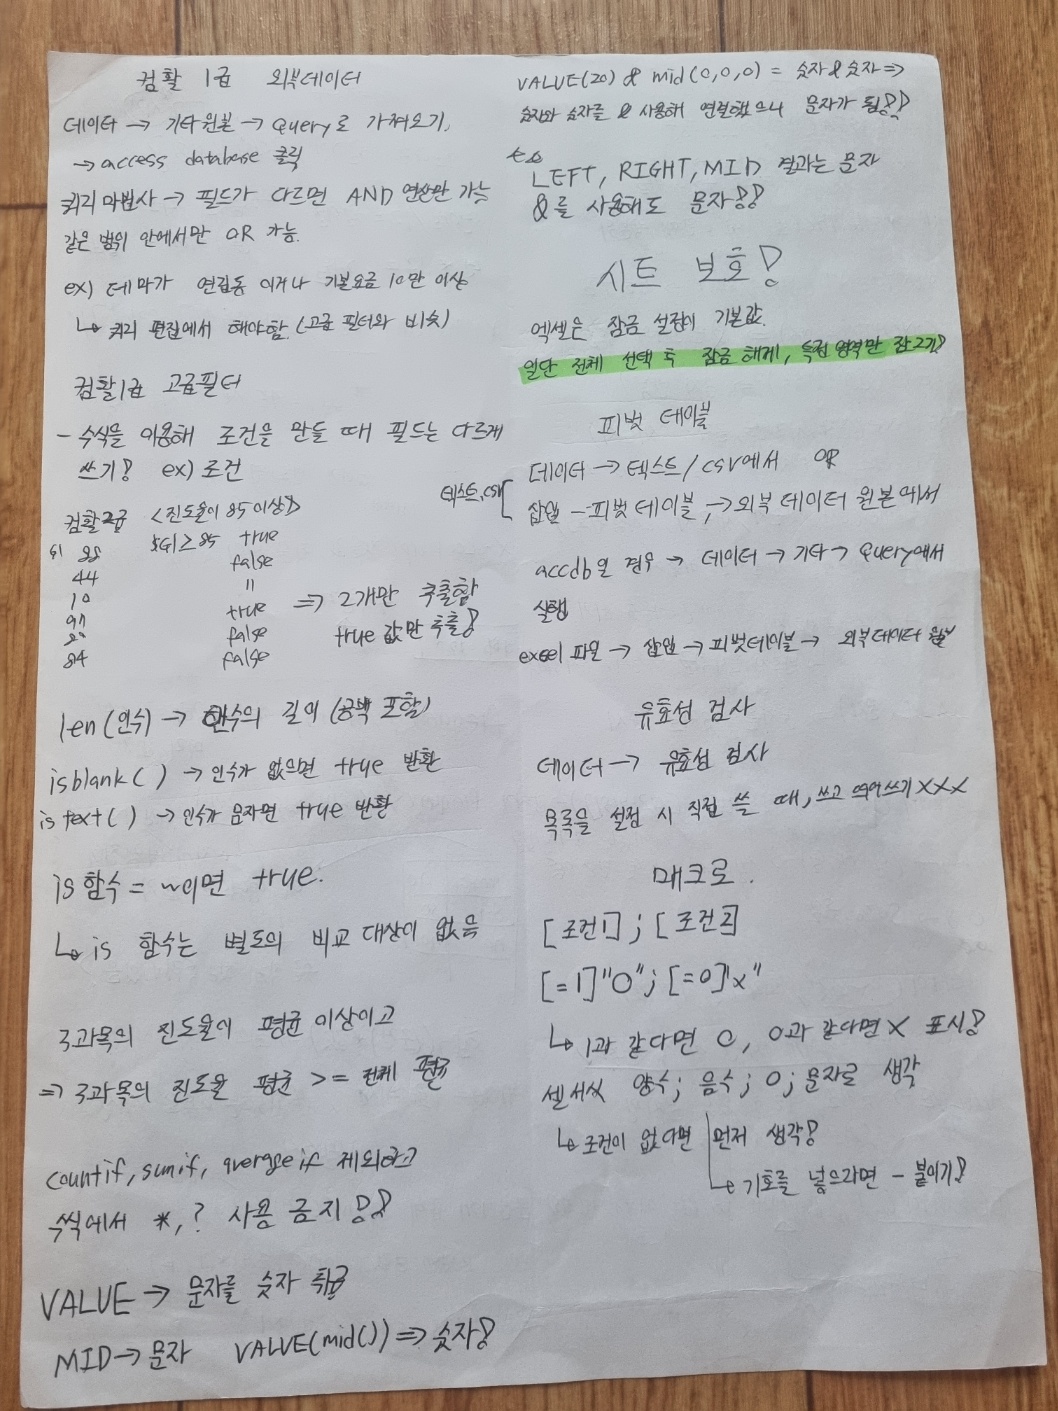 컴활 1급 외부데이터
데이터 → 기타원본 → Query로 가져오기,
→ access database 클릭
쿼리 마법사 → 필드가 다르면 AND 연산만 가능
같은 범위 안에서만 OR 가능.
ex) 테마가 연립동 이거나 기본요금 10만 이상
↳ 쿼리 편집에서 해야함. (고급 필터와 비슷)
컴활1급 고급필터
- 수식을 이용해 조건을 만들 때 필드는 다르게
쓰기! ex) 조건
컴활2급 <진도율이 85 이상>
G1 88 $G1≥85 true
44 false
10 "
91 true ⇒ 2개만 추출함
false true 값만 추출!
84 false
len(인수) → 인수의 길이 (공백 포함)
isblank( ) → 인수가 없으면 true 반환
istext( ) → 인수가 문자면 true 반환
is함수 = ~이면 true.
↳ is 함수는 별도의 비교 대상이 없음
3과목의 진도율이 평균 이상이고
⇒ 3과목의 진도율 평균 >= 전체 평균
countif, sumif, averageif 제외하고
수식에서 *, ? 사용 금지!!
VALUE → 문자를 숫자 취급
MID → 문자 VALUE(mid()) ⇒ 숫자!
VALUE(20) & mid(0,0,0) = 숫자 & 숫자 ⇒
숫자와 숫자를 & 사용해 연결했으니 문자가 됨!!
LEFT, RIGHT, MID 결과는 문자
&를 사용해도 문자!!
시트 보호!
엑셀은 잠금 설정이 기본값.
일단 전체 선택 후 잠금 해제, 특정 영역만 잠그기!
피벗 테이블
텍스트,csv [ 데이터 → 텍스트/csv에서 OR
삽입 - 피벗 테이블, → 외부 데이터 원본에서
accdb일 경우 → 데이터 → 기타 → Query에서
실행
excel 파일 → 삽입 → 피벗테이블 → 외부데이터 원본
유효성 검사
데이터 → 유효성 검사
목록을 설정 시 직접 쓸 때, 쓰고 띄어쓰기 XXX
매크로.
[조건1] ; [조건2]
[=1]"O" ; [=0]"x"
↳ 1과 같다면 O, 0과 같다면 X 표시!
셀서식 양수; 음수; 0; 문자로 생각
↳ 조건이 없다면 먼저 생각!
↳ 기호를 넣으라면 - 붙이기!